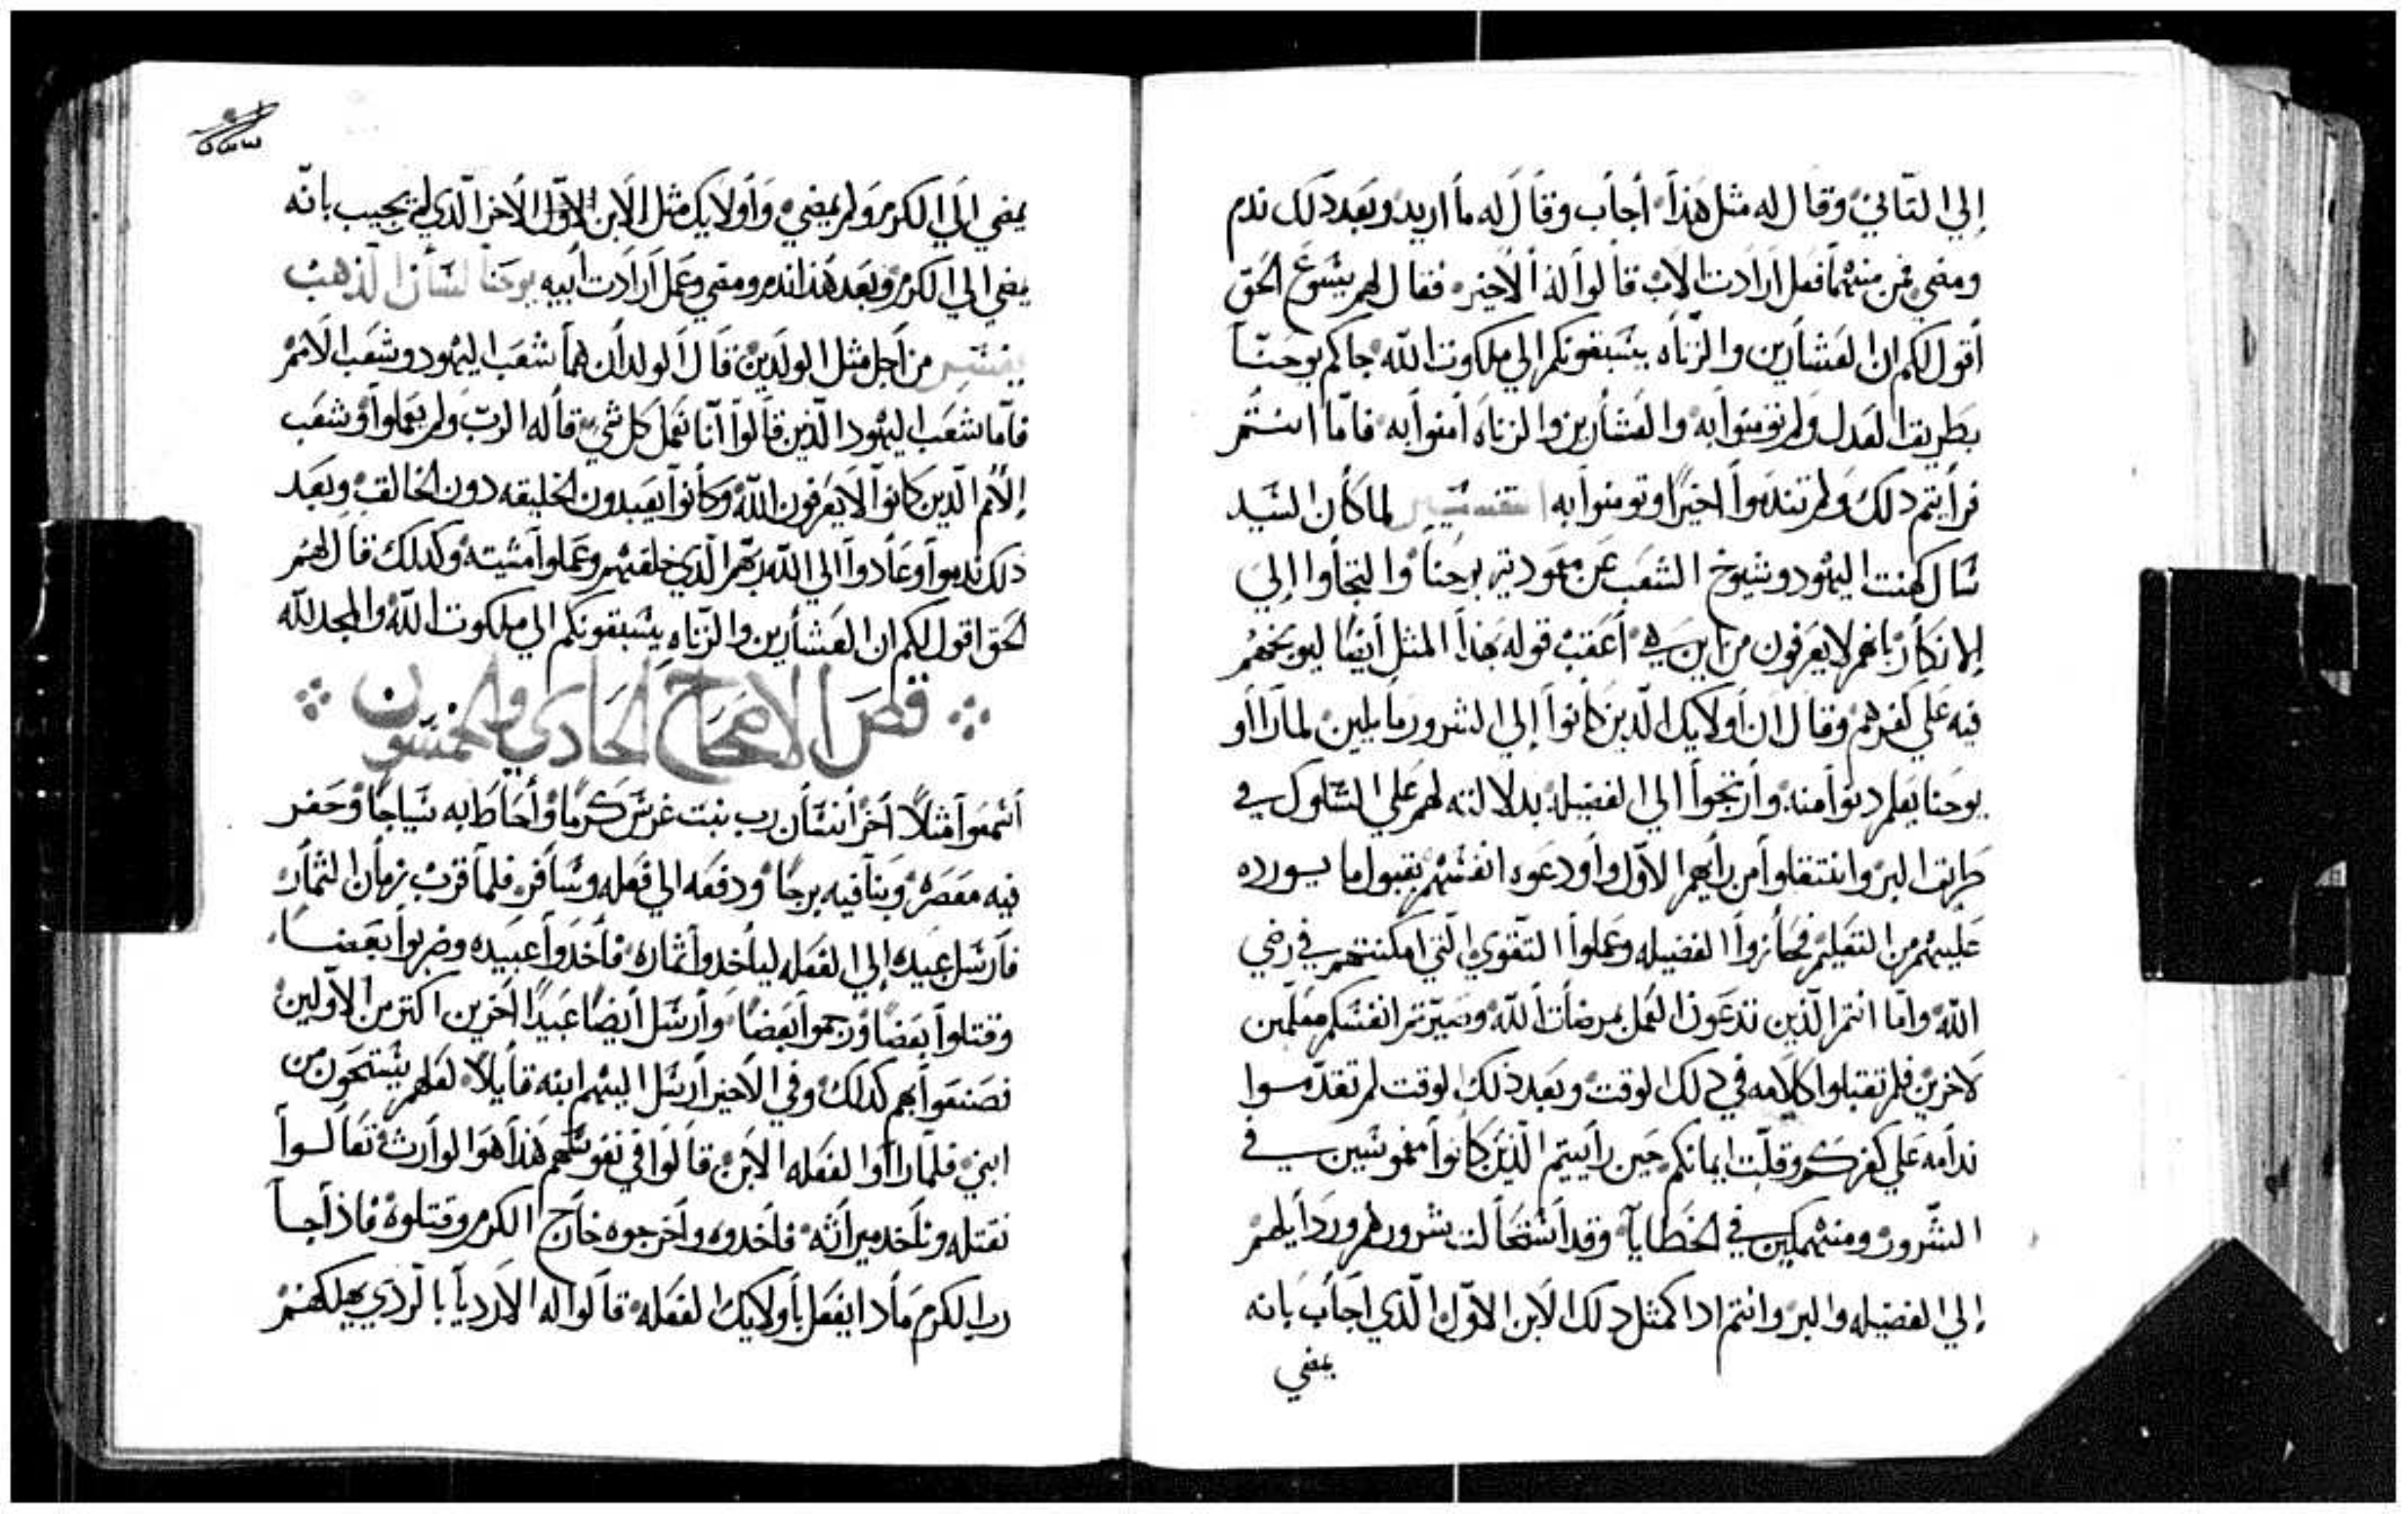 إلي التاني وقال له مثل هذا أجاب وقال له ما اريد وبعد دلك ندم
ومضي فمن منهما فعل ارادت الاب قالوا له الأخير فقال لهم يسوع الحق
أقول لكم ان العشارين والزناه يسبقونكم إلي ملكوت الله جاكم يوحنا
بطريق العدل ولم تومنوا به والعشارين والزناه امنوا به فاما انتم
فرأيتم دلك ولم تندموا اخيرا وتومنوا به التفسير لما كان السيد
سال كهنت اليهود وشيوخ الشعب عن معودية يوحنا والتجأوا إلي
الانكار بانهم لا يعرفون من اين هي أعقب قوله بهذا المثل أيضا ليوبخهم
فيه علي كفرهم وقال ان أولايك الدين كانوا إلي الشرور مايلين لما راأو
يوحنا يعلم دنوا منه وارتجوا الي الفضيله بدلالته لهم علي السلوك في
طريق البر وانتقلوا من رأيهم الاول واودعوه انفسهم بقبول ما يورده
عليهم من التعليم فحازوا الفضيله وعملوا التقوي التي امكنتهم في رضي
الله واما انتم الذين تدعون العمل بمرضات الله وصيرتم انفسكم معلمين
لاخرين فلم تقبلوا كلامه في دلك الوقت وبعد ذلك الوقت لم تقدموا
ندامه علي كفركم وقلت ايمانكم حين راييتم الذين كانوا مغموسين في
الشرور ومنهمكين في الخطايا وقد استحالت شرورهم وردايلهم
إلي الفضيله والبر وانتم ادا كمثل دلك الابن الاول الذي اجاب بانه
يمضي
يمضي الي الكرم ولم يمضي وأولايك مثل الابن الاخر الذي لم يجيب بانه
يمضي الي الكرم وبعد هذا ندم ومضي وعمل ارادت أبيه يوحنا لسان الذهب
يفسر من أجل مثل الولدين قال الولدان هما شعب اليهود وشعب الامم
فاما شعب اليهود الذين قالوا انا نعمل كل شي قاله الرب ولم يعملوا وشعب
الأمم الدين كانوا لا يعرفون الله وكانوا يعبدون الخليقه دون الخالق وبعد
ذلك ندموا وعادوا الي الله ربهم الذي خلقهم وعملوا مشيته وكدلك قال لهم
الحق اقول لكم ان العشارين والزناه يسبقونكم الي ملكوت الله والمجد لله
فص الاصحاح الحادي والخمسون
أسمعوا مثلا اخر أنسان رب بيت غرس كرما وأحاط به سياجا وحفر
فيه معصره وبنا فيه برجا ودفعه الي فعله وسافر فلما قرب زمان الثمار
فارسل عبيده إلي الفعله ليأخدوا ثماره فأخدوا عبيده وضربوا بعضا
وقتلوا بعضا ورجموا بعضا وارسل أيضا عبيدا اخرين اكتر من الاولين
فصنعوا بهم كدلك وفي الاخير ارسل اليهم ابنه قايلا لعلهم يستحون من
ابني فلما راأوا الفعله الابن قالوا في نفوسهم هذا هو الوارث تعالوا
نقتله ونأخد ميراثه فاخدوه واخرجوه خارج الكرم وقتلوه فاذا جا
رب الكرم مادا يفعل بأولايك الفعله قالوا له الارديا بالردي يهلكهم